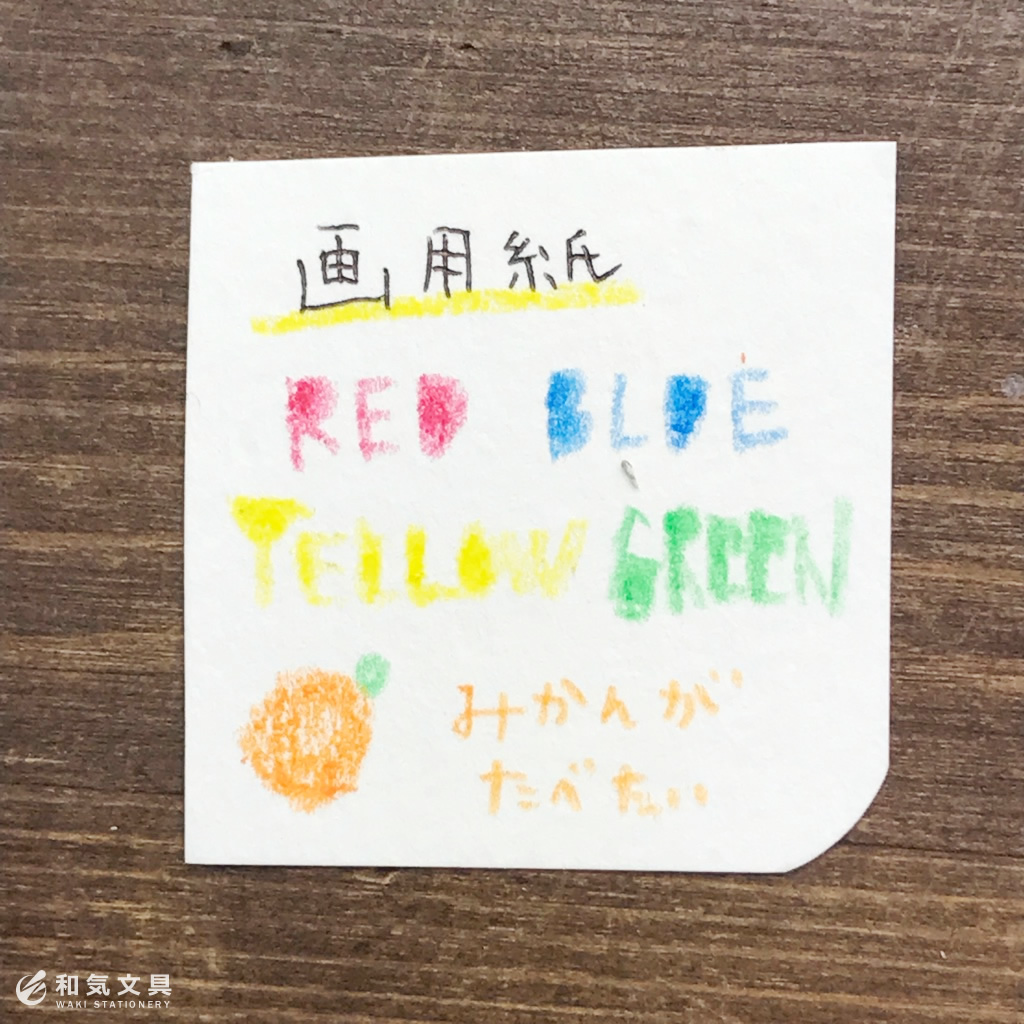 画用紙
RED BLUE
YELLOW GREEN
みかんが
たべたい
和気文具
WAKI STATIONERY